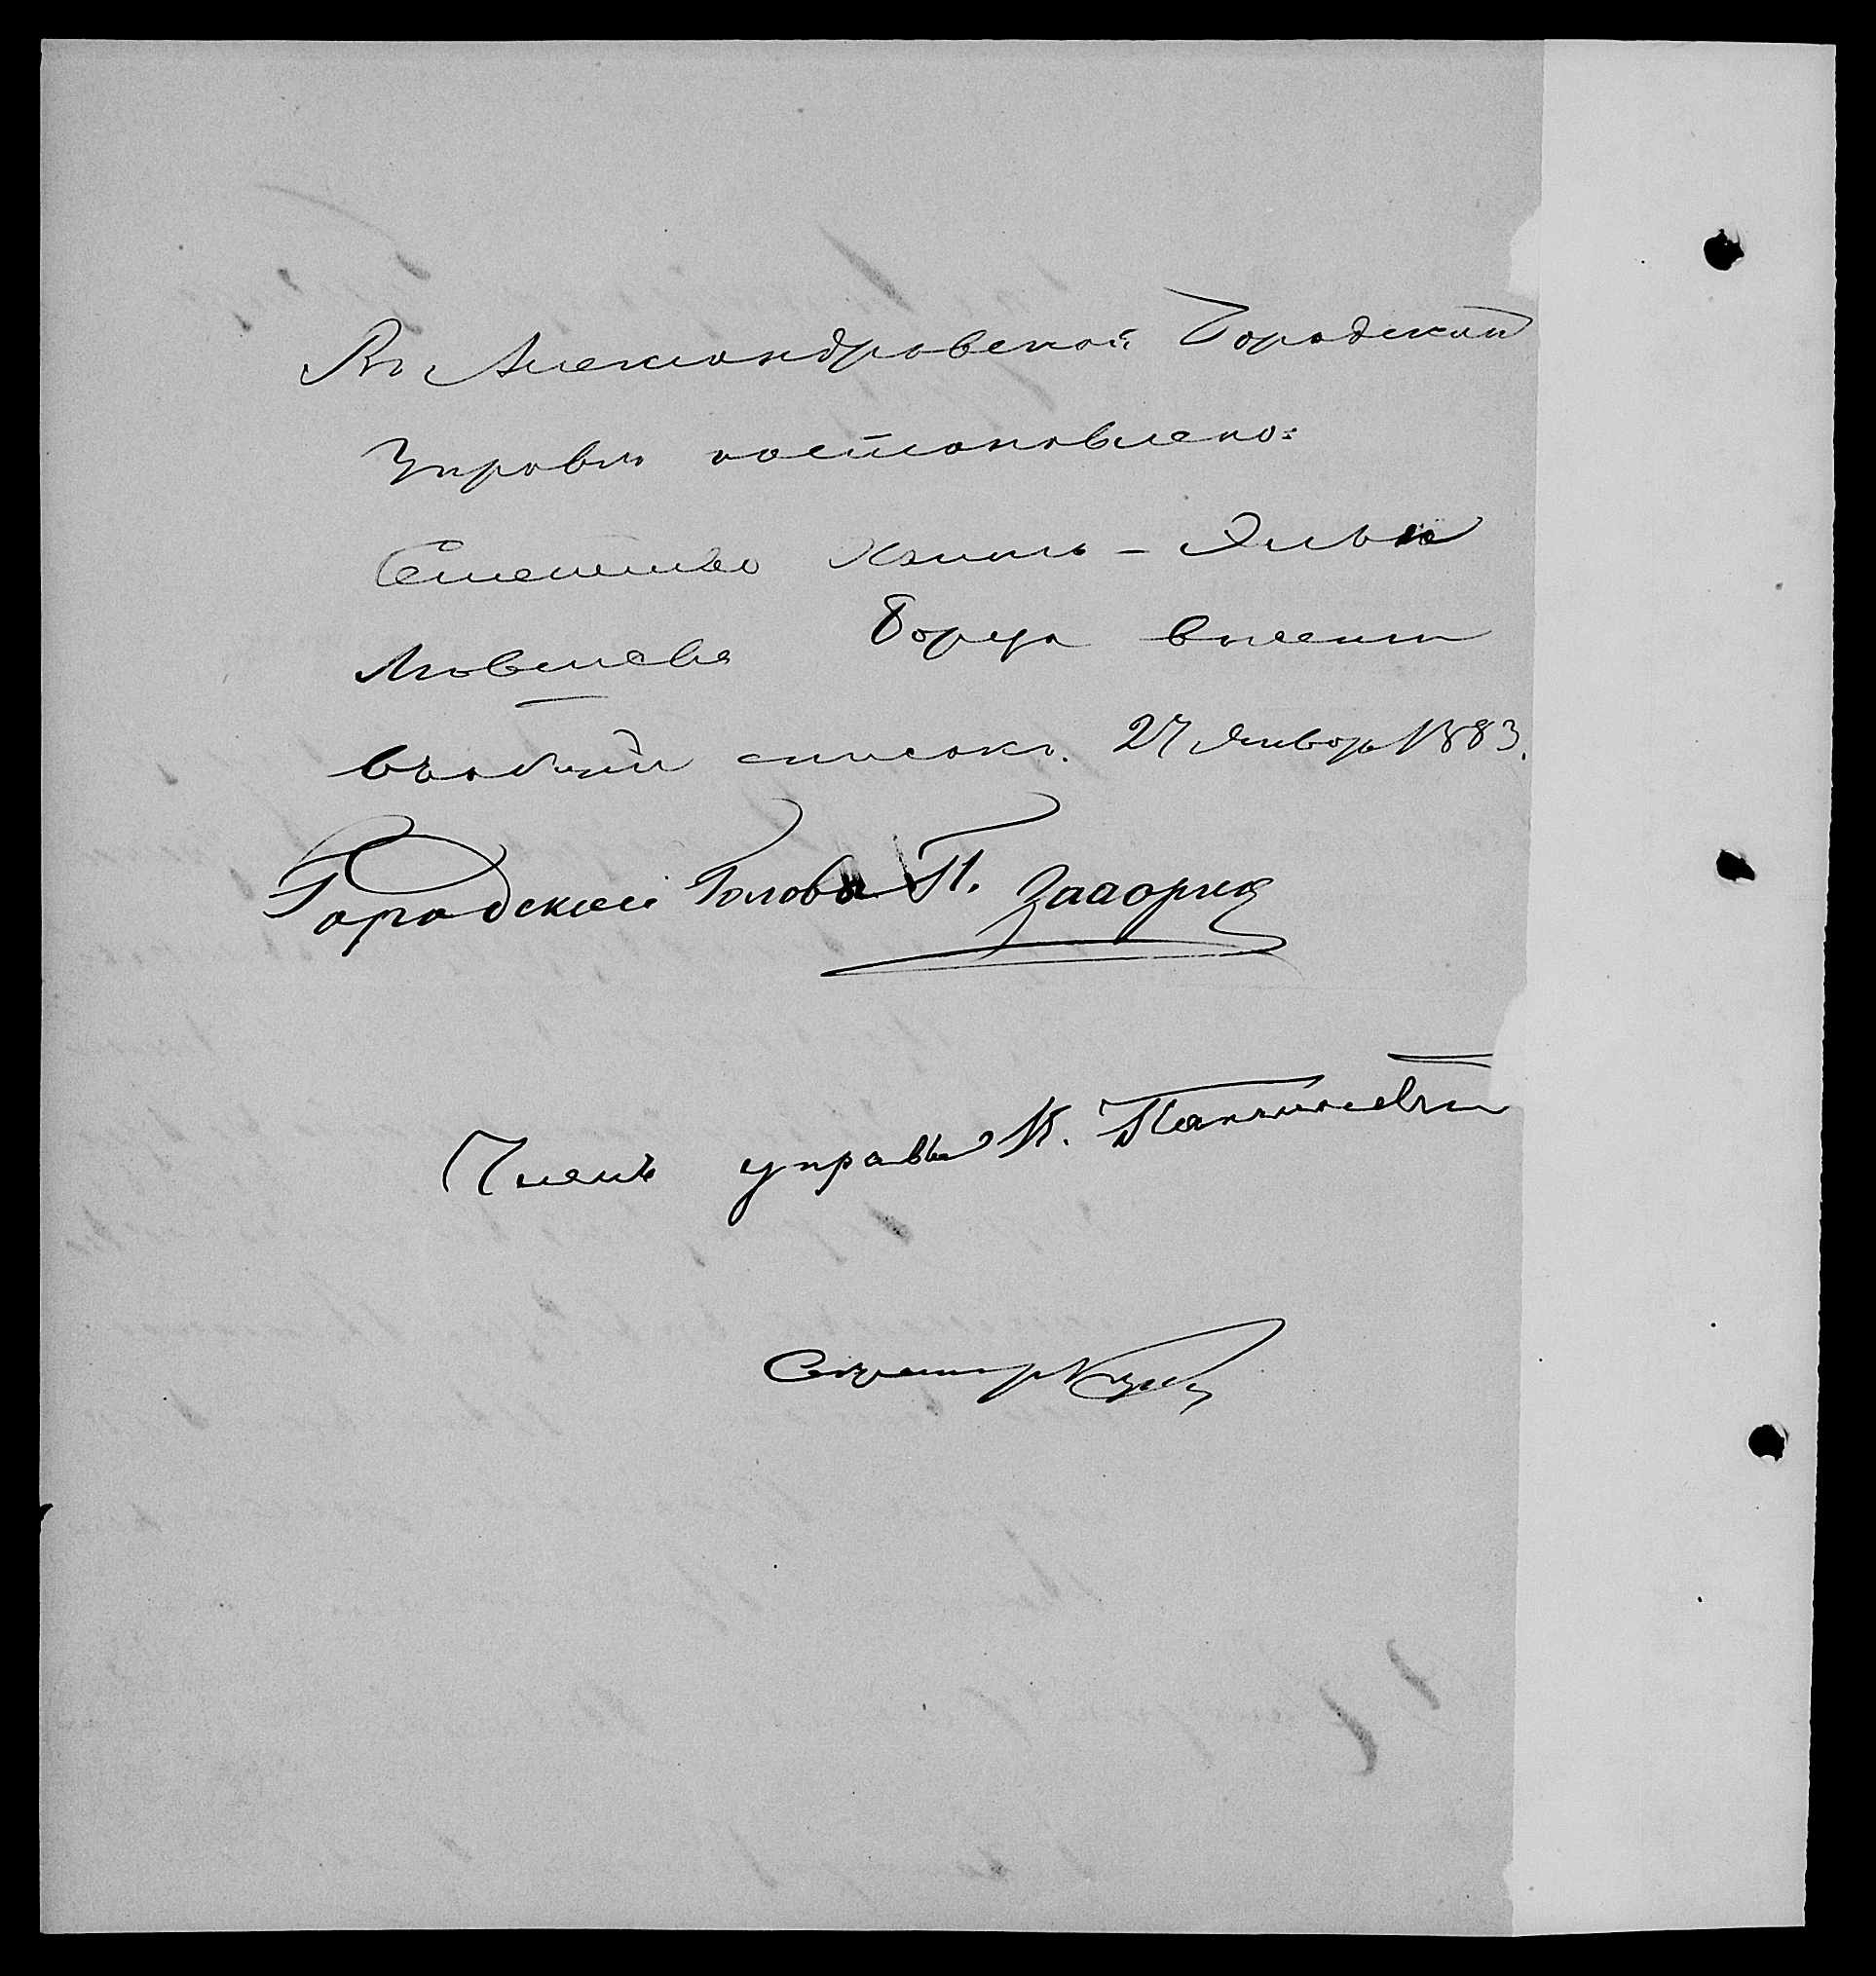 Въ Александровской Городской
Управѣ постановлено:
Семейство Хаимъ-Эльи
Мовшева Борца внести
въ общій списокъ. 27 Января 1883.
Городской Голова П. Захорин
Членъ управы К.
Секретарь